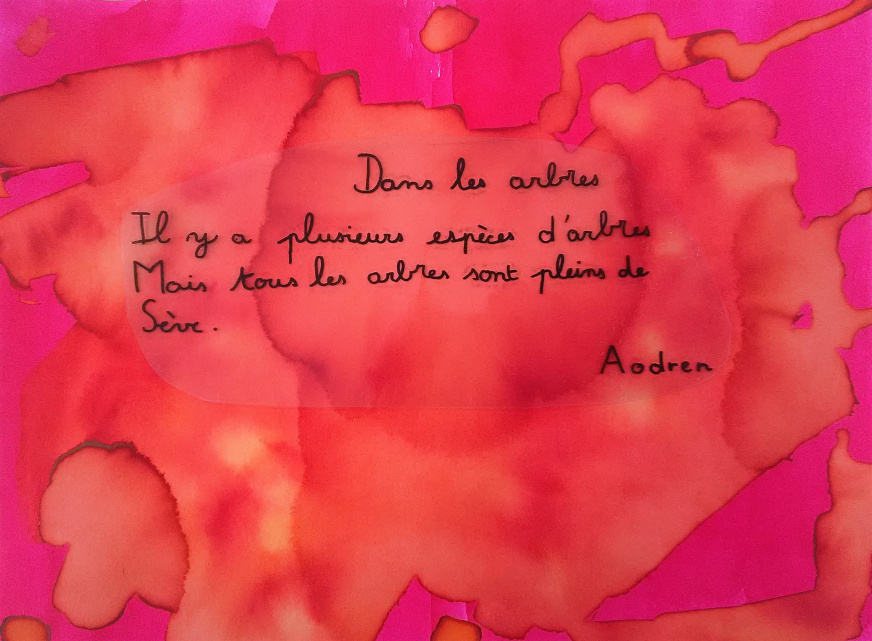 Dans les arbres
Il y a plusieurs espèces d'arbres
Mais tous les arbres sont pleins de
Sève.
Aodren